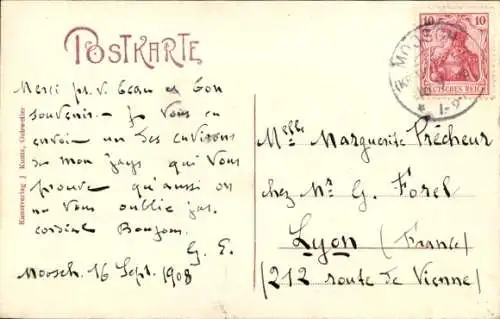 POSTKARTE
Merci pr. v. beau et bon
souvenir. Je vous en
envoie un des environs
de mon pays qui vous
prouve qu'aussi on
ne vous oublie pas.
cordial Bonjour.
G. F.
Moosch, 16 Sept. 1908
Kunstverlag J. Kuntz, Gebweiler
10 10
DEUTSCHES REICH
MOOSCH
Melle Marguerite Prêcheur
chez Mr G. Forel
Lyon (France)
(212 route de Vienne)